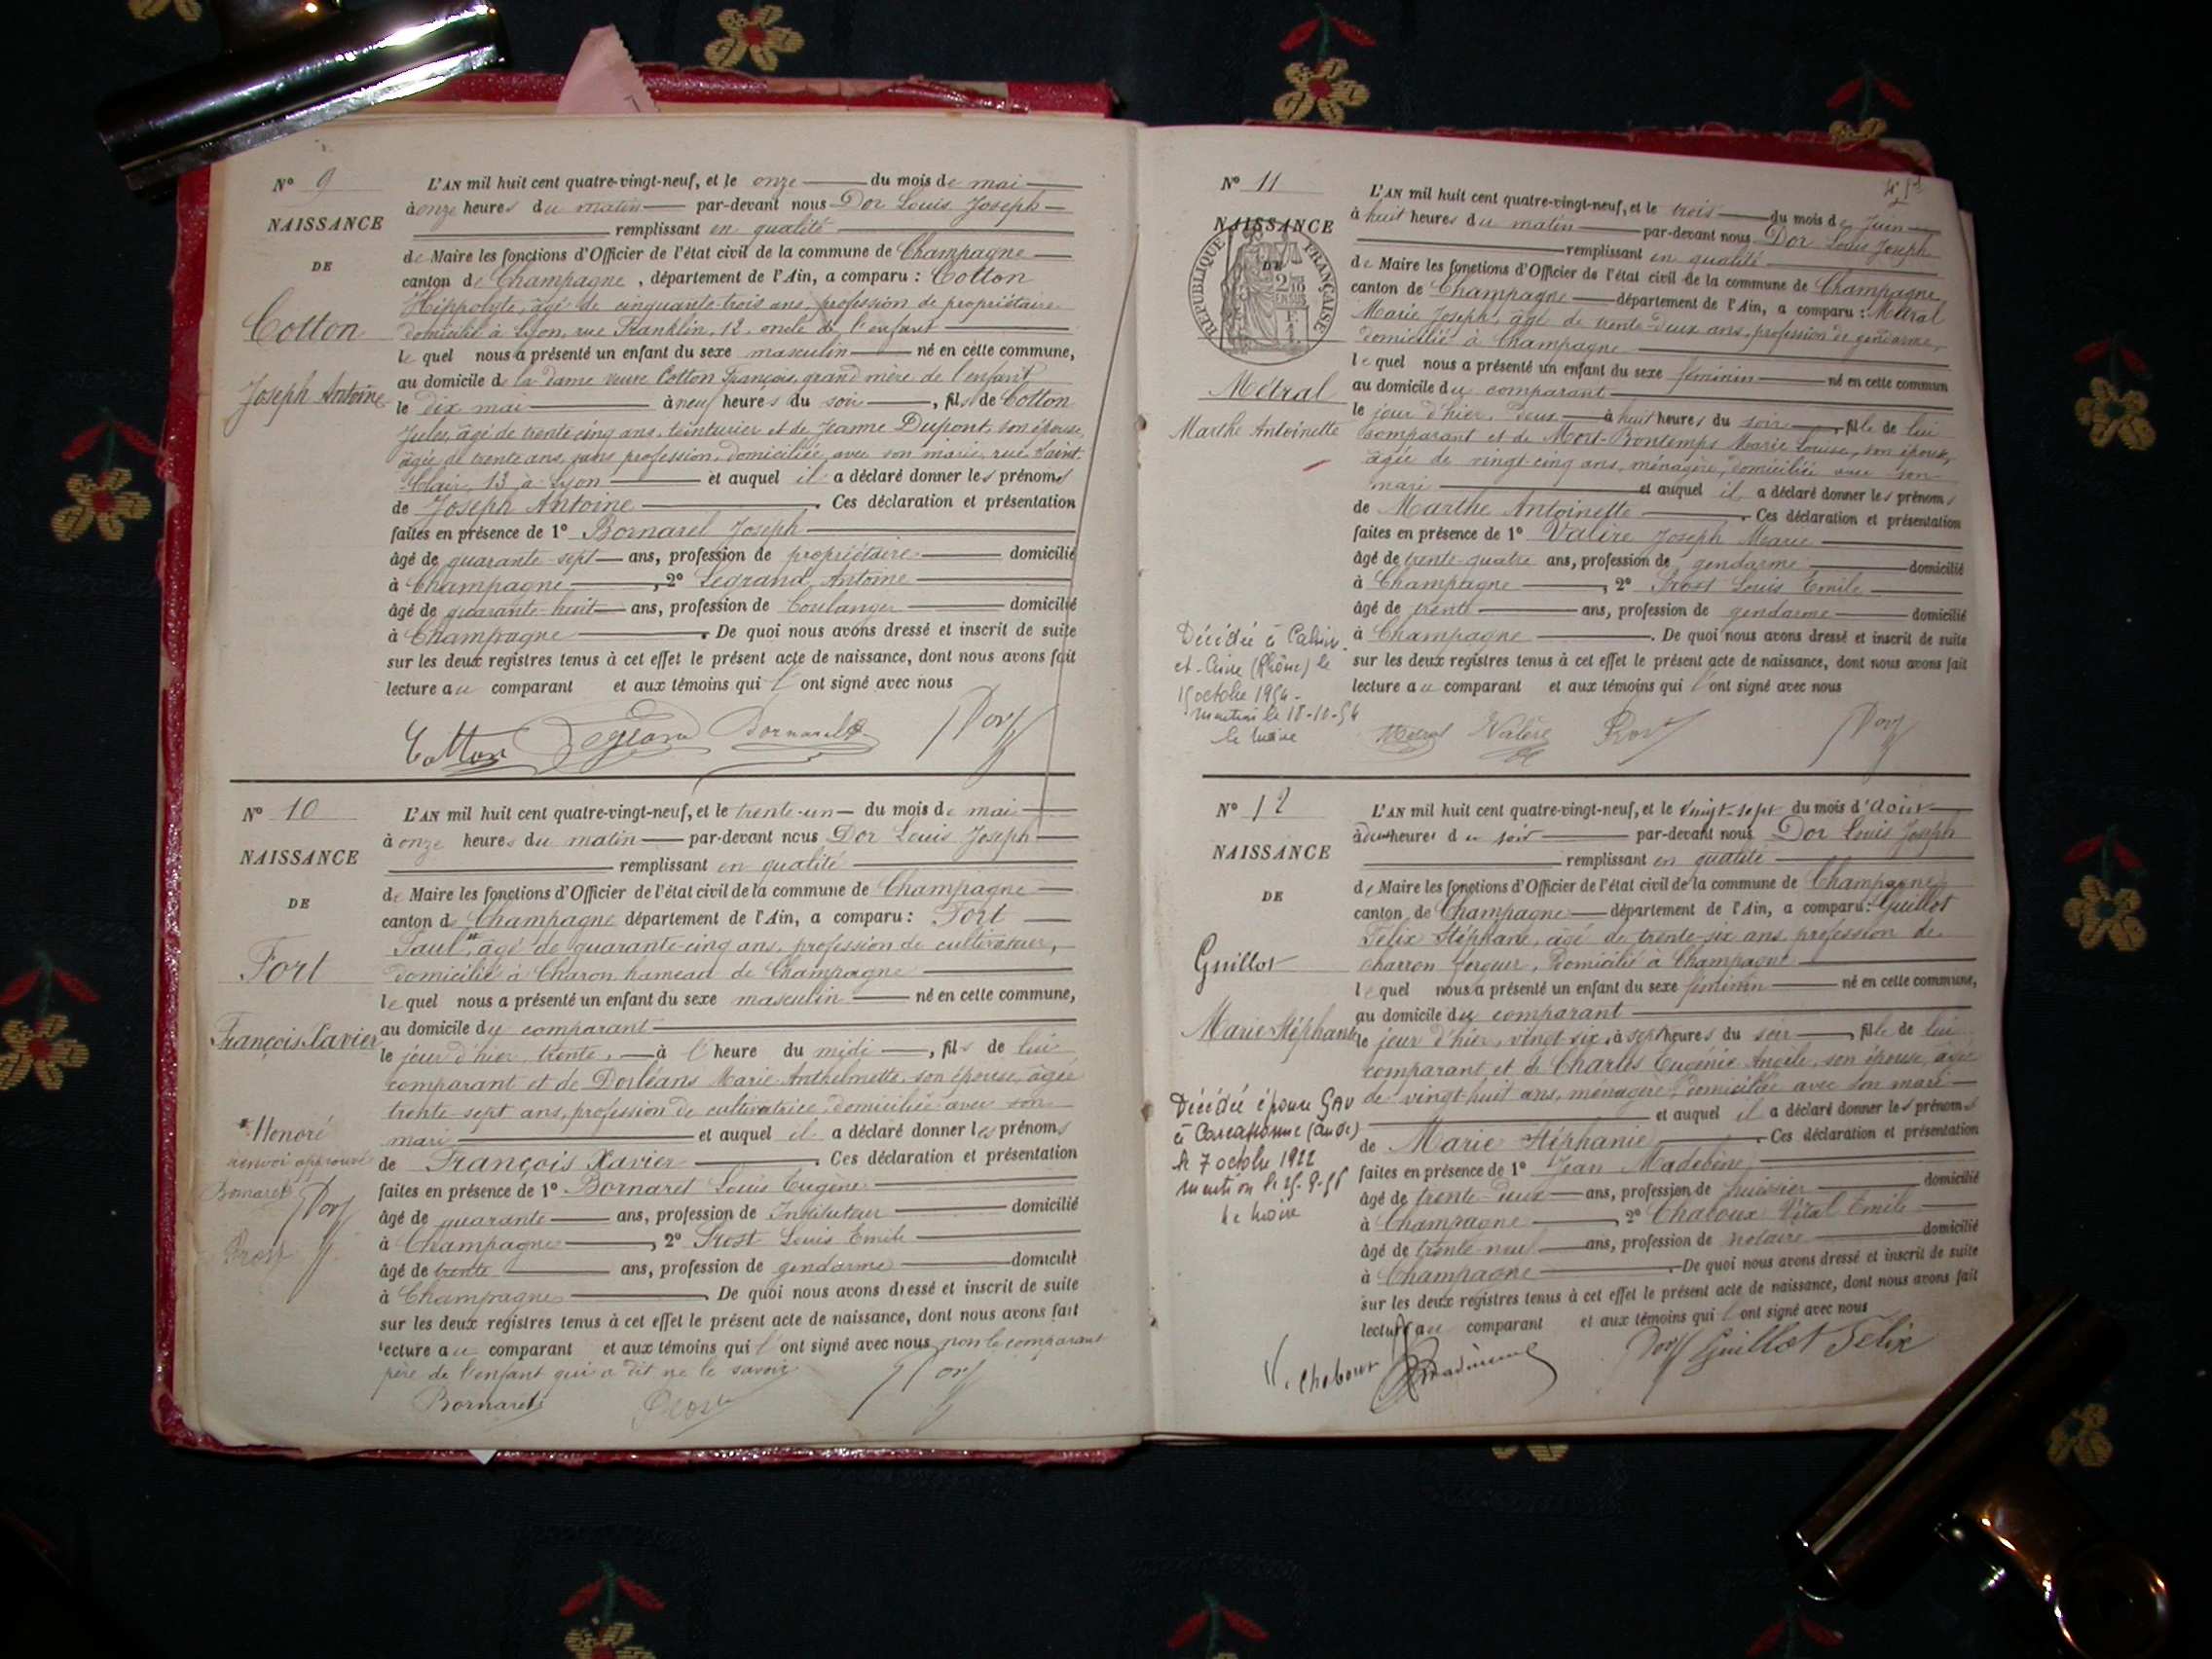 N° 9
NAISSANCE
DE
Cotton
Joseph Antoine
L'AN mil huit cent quatre-vingt-neuf, et le onze du mois de mai
à onze heures du matin par-devant nous Dor Louis Joseph
remplissant en qualité
de Maire les fonctions d'Officier de l'état civil de la commune de Champagne
canton de Champagne, département de l'Ain, a comparu : Cotton
Hippolyte, âgé de cinquante-trois ans, profession de propriétaire
domicilié à Lyon, rue Franklin, 12, oncle de l'enfant
lequel nous a présenté un enfant du sexe masculin né en cette commune,
au domicile de la dame veuve Cotton François, grand mère de l'enfant
le dix mai à neuf heures du soir, fils de Cotton
Jules, âgé de trente cinq ans, teinturier et de Jeanne Dupont, son épouse,
âgée de trente ans, sans profession, domiciliée avec son mari, rue Saint
Clair, 13, à Lyon et auquel il a déclaré donner les prénoms
de Joseph Antoine. Ces déclaration et présentation
faites en présence de 1° Bornarel Joseph
âgé de quarante-sept ans, profession de propriétaire domicilié
à Champagne, 2° Legrand Antoine
âgé de quarante-huit ans, profession de boulanger domicilié
à Champagne. De quoi nous avons dressé et inscrit de suite
sur les deux registres tenus à cet effet le présent acte de naissance, dont nous avons fait
lecture au comparant et aux témoins qui l'ont signé avec nous
Cotton Legrand Bornarel Dor
N° 10
NAISSANCE
DE
Fort
François Xavier
* Honoré
renvoi approuvé
Bornarel Dor
Prost
L'AN mil huit cent quatre-vingt-neuf, et le trente-un du mois de mai
à onze heures du matin par-devant nous Dor Louis Joseph
remplissant en qualité
de Maire les fonctions d'Officier de l'état civil de la commune de Champagne
canton de Champagne département de l'Ain, a comparu : Fort
Paul * âgé de quarante-cinq ans, profession de cultivateur,
domicilié à Charon hameau de Champagne
lequel nous a présenté un enfant du sexe masculin né en cette commune,
au domicile du comparant
le jour d'hier, trente, à l'heure du midi, fils de lui
comparant et de Dorléans Marie Anthelmette, son épouse, âgée
trente-sept ans, profession de cultivatrice, domiciliée avec son
mari et auquel il a déclaré donner les prénoms
de François Xavier. Ces déclaration et présentation
faites en présence de 1° Bornarel Louis Eugène
âgé de quarante ans, profession de Instituteur domicilié
à Champagne, 2° Prost Louis Emile
âgé de trente ans, profession de gendarme domicilié
à Champagne. De quoi nous avons dressé et inscrit de suite
sur les deux registres tenus à cet effet le présent acte de naissance, dont nous avons fait
lecture au comparant et aux témoins qui l'ont signé avec nous non le comparant
père de l'enfant qui a dit ne le savoir
Bornarel Prost Dor
N° 11
NAISSANCE
DE
RÉPUBLIQUE FRANÇAISE
Métral
Marthe Antoinette
Décédée à Caluire-
et-Cuire (Rhône) le
15 octobre 1954.
mention le 18-10-54
le maire
L'AN mil huit cent quatre-vingt-neuf, et le trois du mois de Juin
à huit heures du matin par-devant nous Dor Louis Joseph
remplissant en qualité
de Maire les fonctions d'Officier de l'état civil de la commune de Champagne
canton de Champagne département de l'Ain, a comparu : Métral
Marie Joseph, âgé de trente-deux ans, profession de gendarme,
domicilié à Champagne
lequel nous a présenté un enfant du sexe féminin né en cette commun
au domicile du comparant
le jour d'hier, deux à huit heures du soir, fille de lui
comparant et de Mort-Bontemps Marie Louise, son épouse,
âgée de vingt-cinq ans, ménagère, domiciliée avec son
mari et auquel il a déclaré donner les prénoms
de Marthe Antoinette. Ces déclaration et présentation
faites en présence de 1° Valire Joseph Marie
âgé de trente quatre ans, profession de gendarme domicilié
à Champagne, 2° Prost Louis Emile
âgé de trente ans, profession de gendarme domicilié
à Champagne. De quoi nous avons dressé et inscrit de suite
sur les deux registres tenus à cet effet le présent acte de naissance, dont nous avons fait
lecture au comparant et aux témoins qui l'ont signé avec nous
Métral Valire Prost Dor
N° 12
NAISSANCE
DE
Guillot
Marie Stéphanie
Décédée épouse GAU
à Carcassonne (Aude)
le 7 octobre 1922
mention le
le maire
L'AN mil huit cent quatre-vingt-neuf, et le vingt-sept du mois d'Août
à deux heures du soir par-devant nous Dor Louis Joseph
remplissant en qualité
de Maire les fonctions d'Officier de l'état civil de la commune de Champagne
canton de Champagne département de l'Ain, a comparu : Guillot
Félix Stéphane, âgé de trente-six ans, profession de
charron forgeur, Domicilié à Champagne
lequel nous a présenté un enfant du sexe féminin né en cette commune,
au domicile du comparant
le jour d'hier, vingt six, à sept heures du soir, fille de lui
comparant et de Charles Eugénie Angèle, son épouse, âgée
de vingt-huit ans, ménagère, domiciliée avec son mari
et auquel il a déclaré donner les prénoms
de Marie Stéphanie. Ces déclaration et présentation
faites en présence de 1° Jean Madebène
âgé de trente-deux ans, profession de huissier domicilié
à Champagne, 2° Chaboux Vital Emile
âgé de trente-neuf ans, profession de notaire domicilié
à Champagne. De quoi nous avons dressé et inscrit de suite
sur les deux registres tenus à cet effet le présent acte de naissance, dont nous avons fait
lecture au comparant et aux témoins qui l'ont signé avec nous
V. Chaboux Dor Guillot Félix